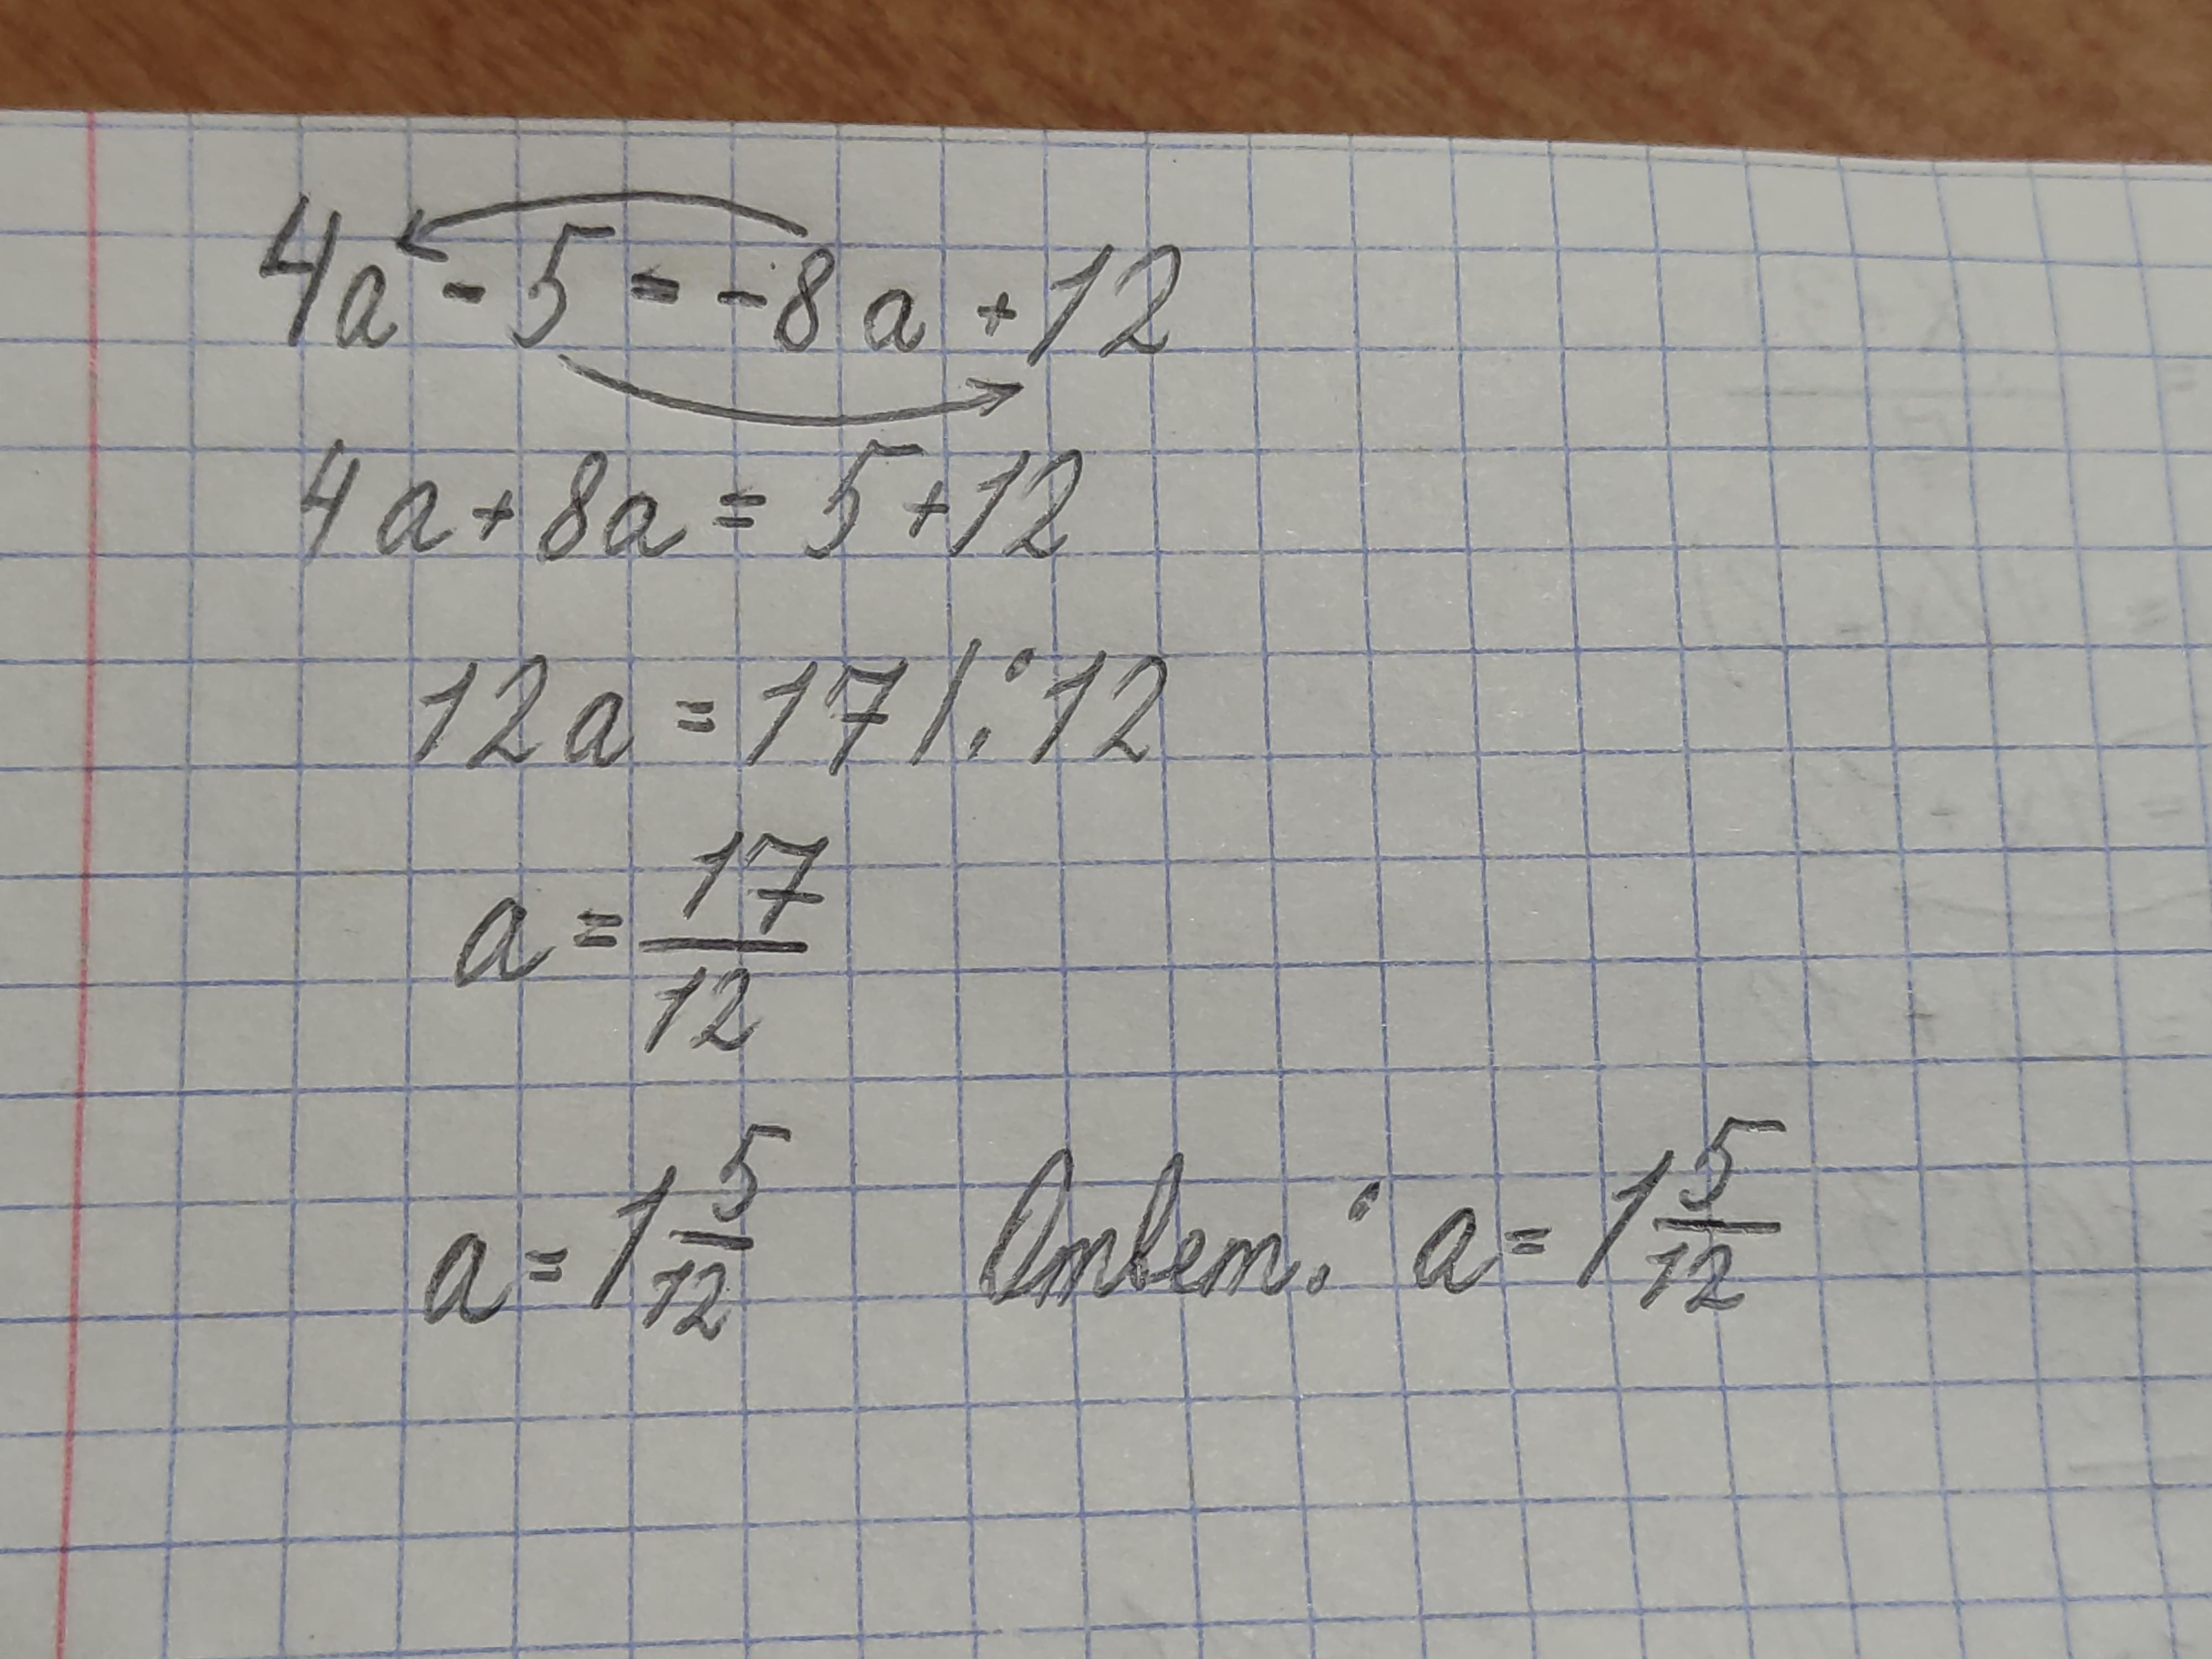 4a - 5 = -8a + 12
4a + 8a = 5 + 12
12a = 17 | : 12
a = 17/12
a = 1 5/12 Ответ: a = 1 5/12